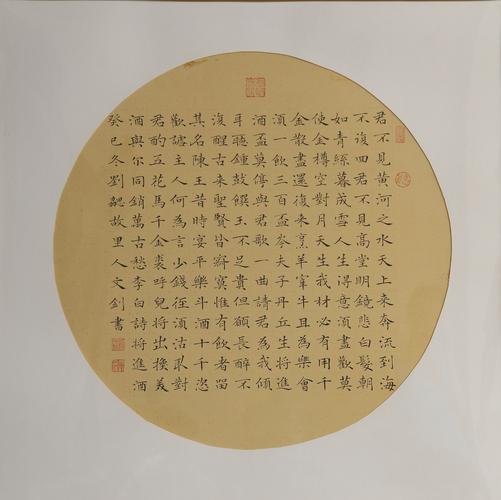 君不見黃河之水天上來奔流到海
不復回君不見高堂明鏡悲白髮朝
如青絲暮成雪人生得意須盡歡莫
使金樽空對月天生我材必有用千
金散盡還復來烹羊宰牛且為樂會
須一飲三百盃岑夫子丹丘生將進
酒盃莫停與君歌一曲請君為我傾
耳聽鐘鼓饌玉不足貴但願長醉不
復醒古來聖賢皆寂寞惟有飲者留
其名陳王昔時宴平樂斗酒十千恣
歡謔主人何為言少錢徑須沽取對
君酌五花馬千金裘呼兒將出換美
酒與尔同銷萬古愁李白詩將進酒
癸巳冬劉勰故里人文劍書